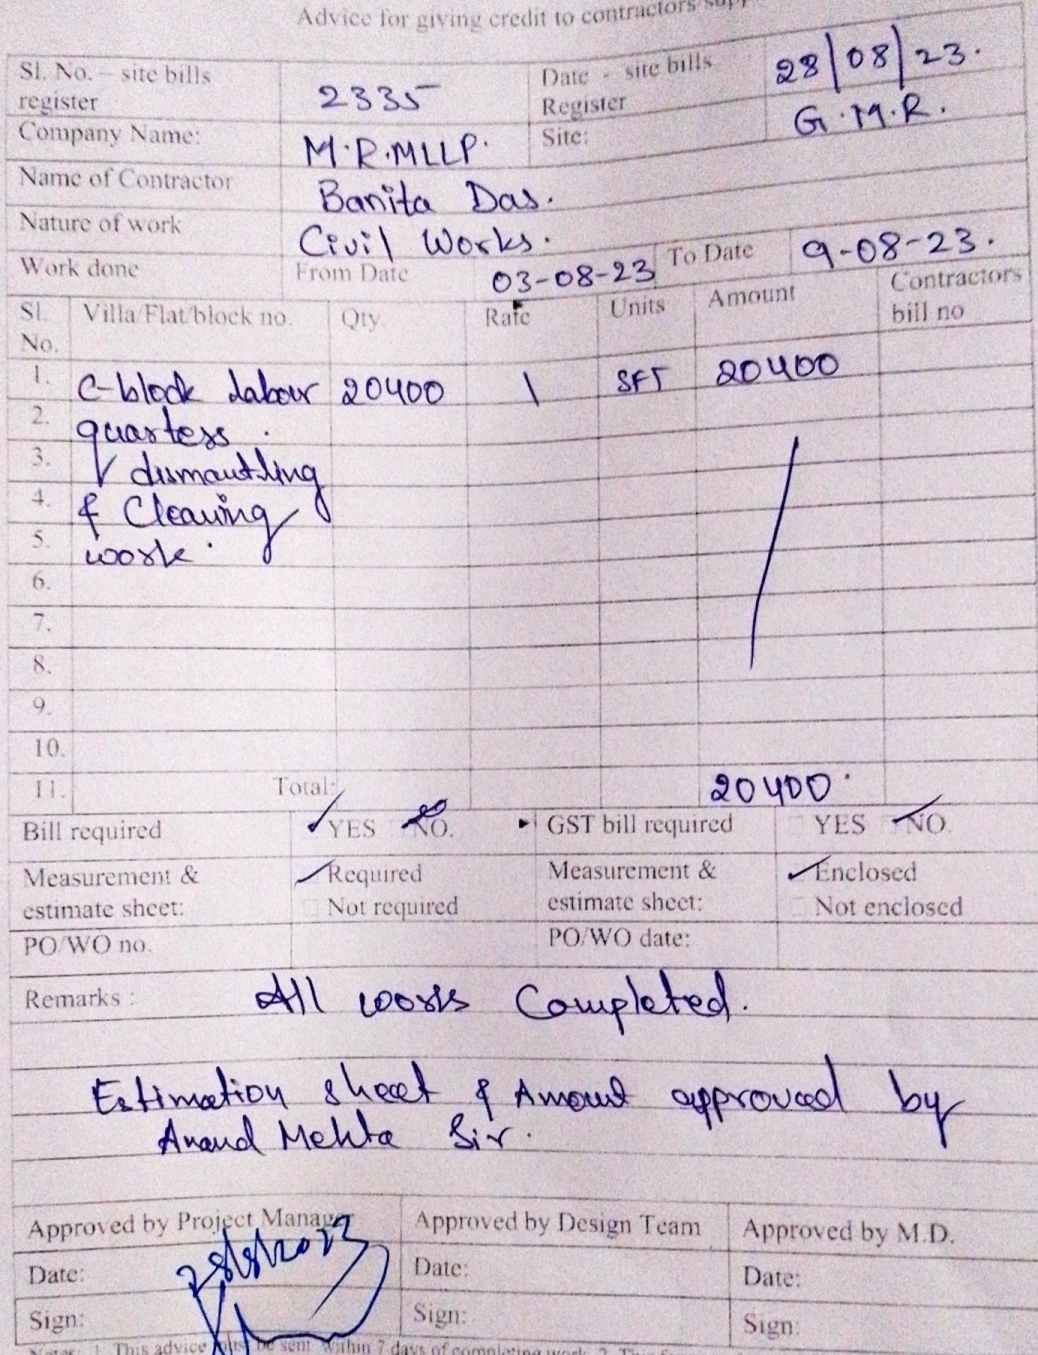 Advice for giving credit to contractors/supp
Sl. No. – site bills register 2335 Date - site bills Register 28/08/23.
Company Name: M.R.MLLP. Site: G.M.R.
Name of Contractor Banita Das.
Nature of work Civil Works.
Work done From Date 03-08-23 To Date 9-08-23.
Sl. No. Villa/Flat/block no. Qty. Rate Units Amount Contractors bill no
1. C-block labour 20400 1 SFT 20400
2. quarters.
3. dismantling
4. & Cleaning
5. work.
6.
7.
8.
9.
10.
11. Total: 20400.
Bill required YES NO. GST bill required YES NO.
Measurement & estimate sheet: Required Measurement & estimate sheet: Enclosed
Not required Not enclosed
PO/WO no. PO/WO date:
Remarks : All works Completed.
Estimation sheet & Amount approved by
Anand Mehta Sir.
Approved by Project Manager Approved by Design Team Approved by M.D.
Date: 28/8/2023 Date: Date:
Sign: Sign: Sign:
1. This advice must be sent within 7 days of completing work. 2.